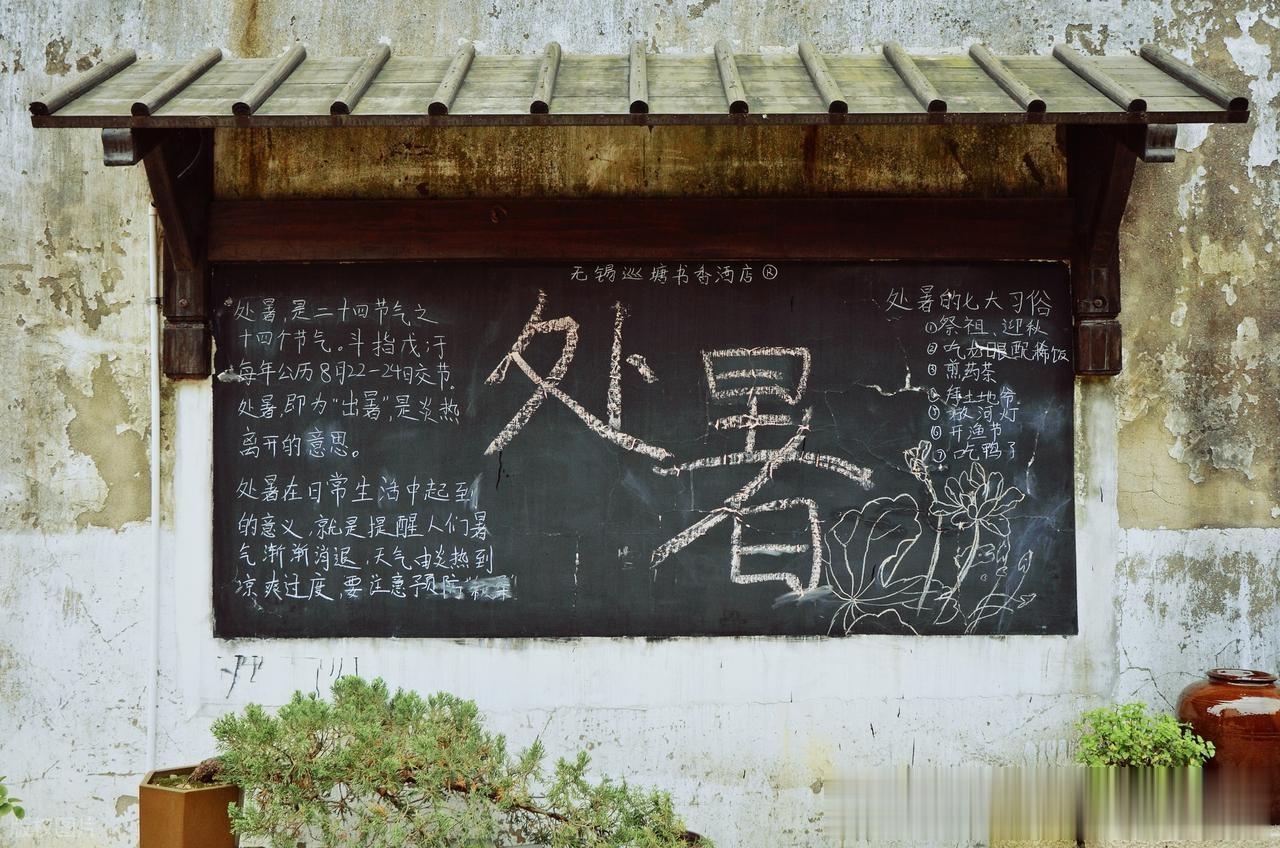 无锡巡塘书香酒店®
处暑,是二十四节气之
十四个节气。斗指戊汙
每年公历8月22-24日交节。
处暑,即为"出暑",是炎热
离开的意思。
处暑在日常生活中起到
的意义,就是提醒人们暑
气渐渐消退,天气由炎热到
凉爽过度,要注意预防"秋
处暑
处暑的七大习俗
①祭祖、迎秋
②吃龙眼配稀饭
③煎药茶
④拜土地爷
⑤放河灯
⑥开渔节
⑦吃鸭子